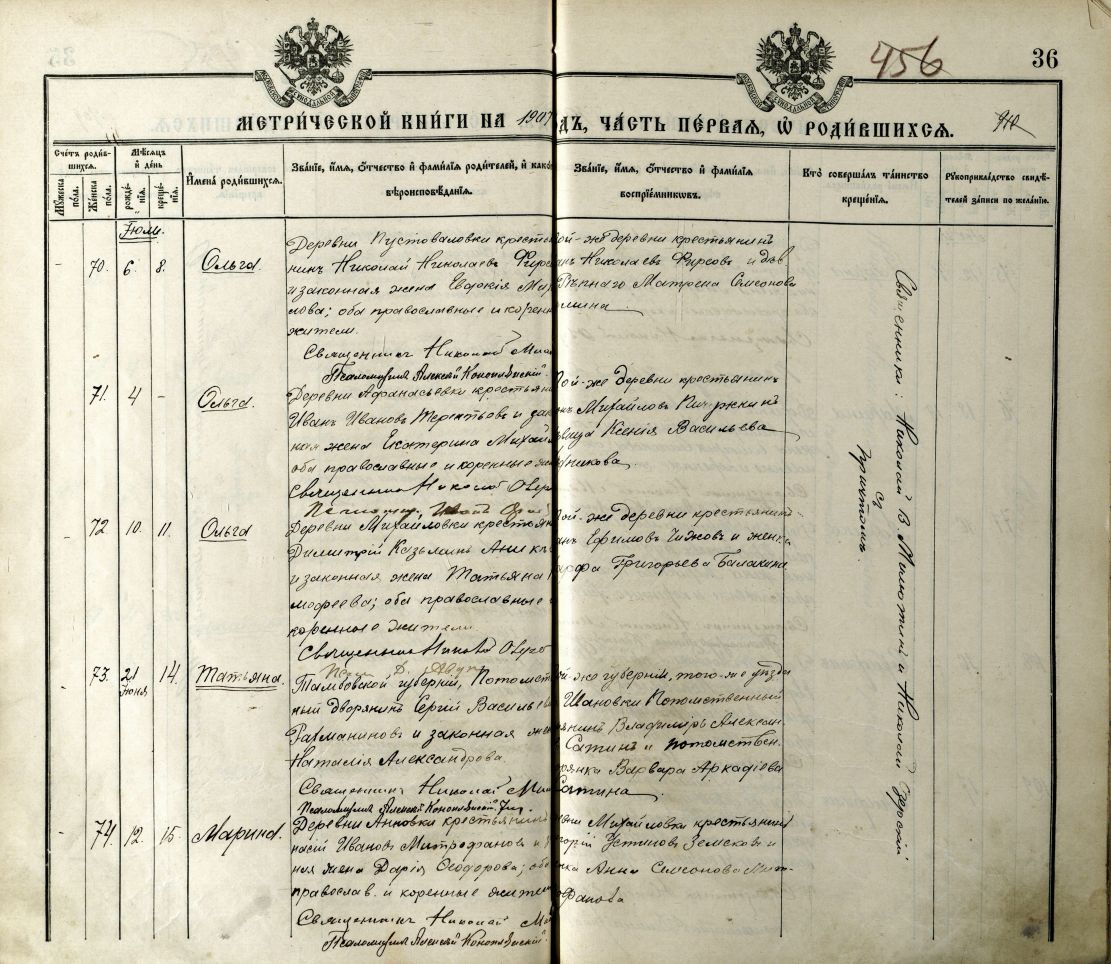 456
36
МЕТРИ́ЧЕСКОЙ КНИ́ГИ НА 1907
ДЪ, ЧА́СТЬ ПЕ́РВАЯ, Ѿ РОДИ́ВШИХСЯ.
Сче́тъ роди́вшихся.
Мѣ́сяцъ и̂ де́нь
Му́жеска по́ла.
Же́нска по́ла.
рожде́нїѧ.
креще́нїѧ.
И̂мена̀ роди́вшихся.
Зва́нїе, и̂́мѧ, ѻ̂́тчество и̂ фами́лїѧ роди́телей, и̂ како́
вѣроисповѣ́данїѧ.
Зва́нїе, и̂́мѧ, ѻ̂́тчество и̂ фами́лїѧ
воспрїе́мниковъ.
Кто̀ соверша́лъ та́инство
креще́нїѧ.
Рꙋкоприкла́дство свидѣ́
телей за́писи по жела́нїю.
Іюль.
- 70. 6. 8. Ольга.
Деревни Пустоваловки кресть
нинъ Николай Николаевъ Фирс
и законная жена Евдокія Ми
лова; оба православные и корен
жители.
Священникъ Николай
Псаломщикъ Алексѣй Конопл
ой-же деревни крестьянинъ
анъ Николаевъ Фирсовъ и дѣв
Матрона Семенова
- 71. 4 - Ольга.
Деревни Афанасьевки крестьян
Иванъ Ивановъ Терехтьевъ и зак
ная жена Екатерина Михай
оба православные и коренные жи
Священникъ Николай Озер
ой-же деревни крестьянинъ
нъ Михайловъ
вица Ксенія Васильева
никова.
72 10. 11. Ольга
Деревни Михайловки крестьян
Димитрій Козьминъ Аник
и законная жена Татьяна
мофеева; оба православные
коренные жители
Священникъ Николай Озер
ой-же деревни крестьянинъ
анъ Ефимовъ Чижовъ и жен
арфа Григорьева Балакина
- 73. 21 Іюня 14. Татьяна.
Тамбовской губерніи, Потомст
ный дворянинъ Сергій Василье
Рахманиновъ и законная же
Наталія Александрова.
Священникъ Николай Ми
Псаломщикъ Алексѣй
ой-же губерніи, того-же уѣзда
Ивановки Потомственный
янинъ Владиміръ Алексан.
Сатинъ и потомствен.
рянка Варвара Аркадіева
Сатина
- 74. 12. 15. Марина.
Деревни Анновки крестьянинъ
насій Ивановъ Митрофановъ и з
ная жена Дарія Ѳеодорова; об
православ. и коренные жител
Священникъ Николай Ми
Псаломщикъ Алексѣй
вни Михайловки крестьянинъ
горій Устиновъ Земсковъ и
нка Анна Семенова Мит-
фанова
Священники: Николай В. Милютинъ и Николай Озерскій
съ
причтомъ.